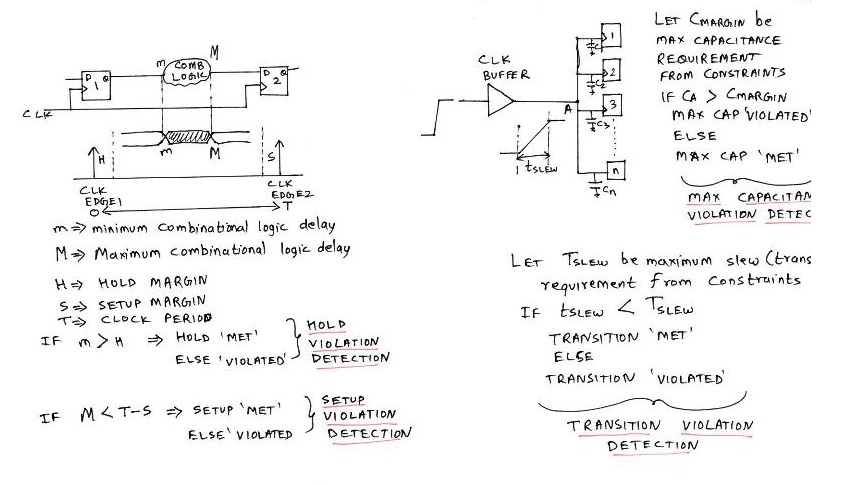 m
M
COMB
LOGIC
D
Q
1
D
Q
2
CLK
m
M
H
S
CLK
EDGE1
O
CLK
EDGE2
T
m => minimum combinational logic delay
M => Maximum combinational logic delay
H => HOLD MARGIN
S => SETUP MARGIN
T => CLOCK PERIOD
IF m > H => HOLD 'MET'
ELSE 'VIOLATED'
HOLD
VIOLATION
DETECTION
IF M < T-S => SETUP 'MET'
ELSE 'VIOLATED
SETUP
VIOLATION
DETECTION
CLK
BUFFER
A
tSLEW
C1
1
C2
2
C3
3
n
Cn
LET CMARGIN be
MAX CAPACITANCE
REQUIREMENT
FROM CONSTRAINTS
IF CA > CMARGIN
MAX CAP 'VIOLATED'
ELSE
MAX CAP 'MET'
MAX CAPACITAN
VIOLATION DETEC
LET TSLEW be maximum slew (trans
requirement from constraints
IF tSLEW < TSLEW
TRANSITION 'MET'
ELSE
TRANSITION 'VIOLATED'
TRANSITION VIOLATION
DETECTION